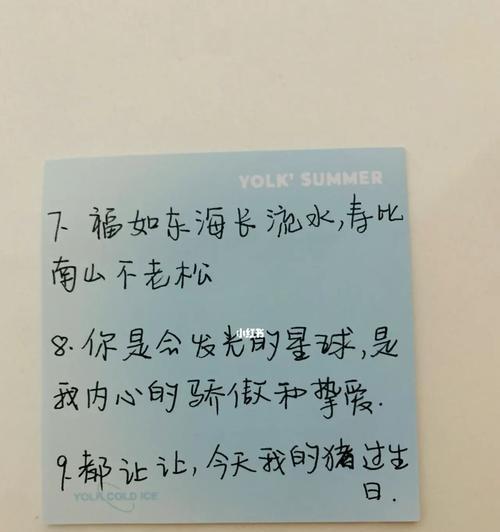 YOLK' SUMMER
7、福如东海长流水,寿比
南山不老松
小红书
8.你是会发光的星球,是
我内心的骄傲和挚爱.
9.都让让,今天我的猪过生
日.
YOLK COLD ICE